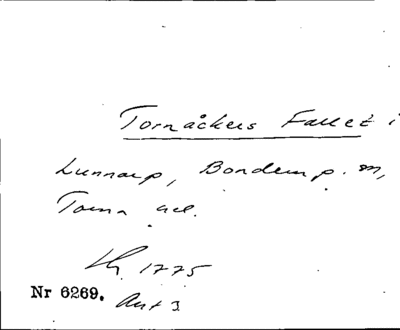 Tornåckers Fallet i
Lunnarp, Bonderup. sn,
Torna hd.
Lh. 1775
Nr 6269. Akt 3